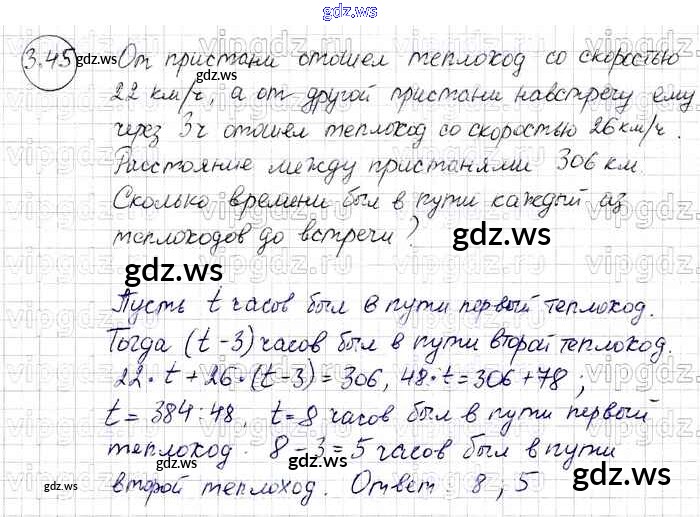 gdz.ws
3.45 gdz.ws От пристани отошел теплоход со скоростью
22 км/ч, а от другой пристани навстречу ему
через 3ч отошел теплоход со скоростью 26 км/ч.
Расстояние между пристанями 306 км.
Сколько времени был в пути каждый из
теплоходов до встречи?
gdz.ws
gdz.ws
Пусть t часов был в пути первый теплоход.
Тогда (t-3) часов был в пути второй теплоход.
22·t+26·(t-3)=306, 48·t=306+78;
t=384:48, t=8 часов был в пути первый
теплоход. 8-3=5 часов был в пути
второй теплоход. Ответ: 8; 5
gdz.ws
gdz.ws
gdz.ws